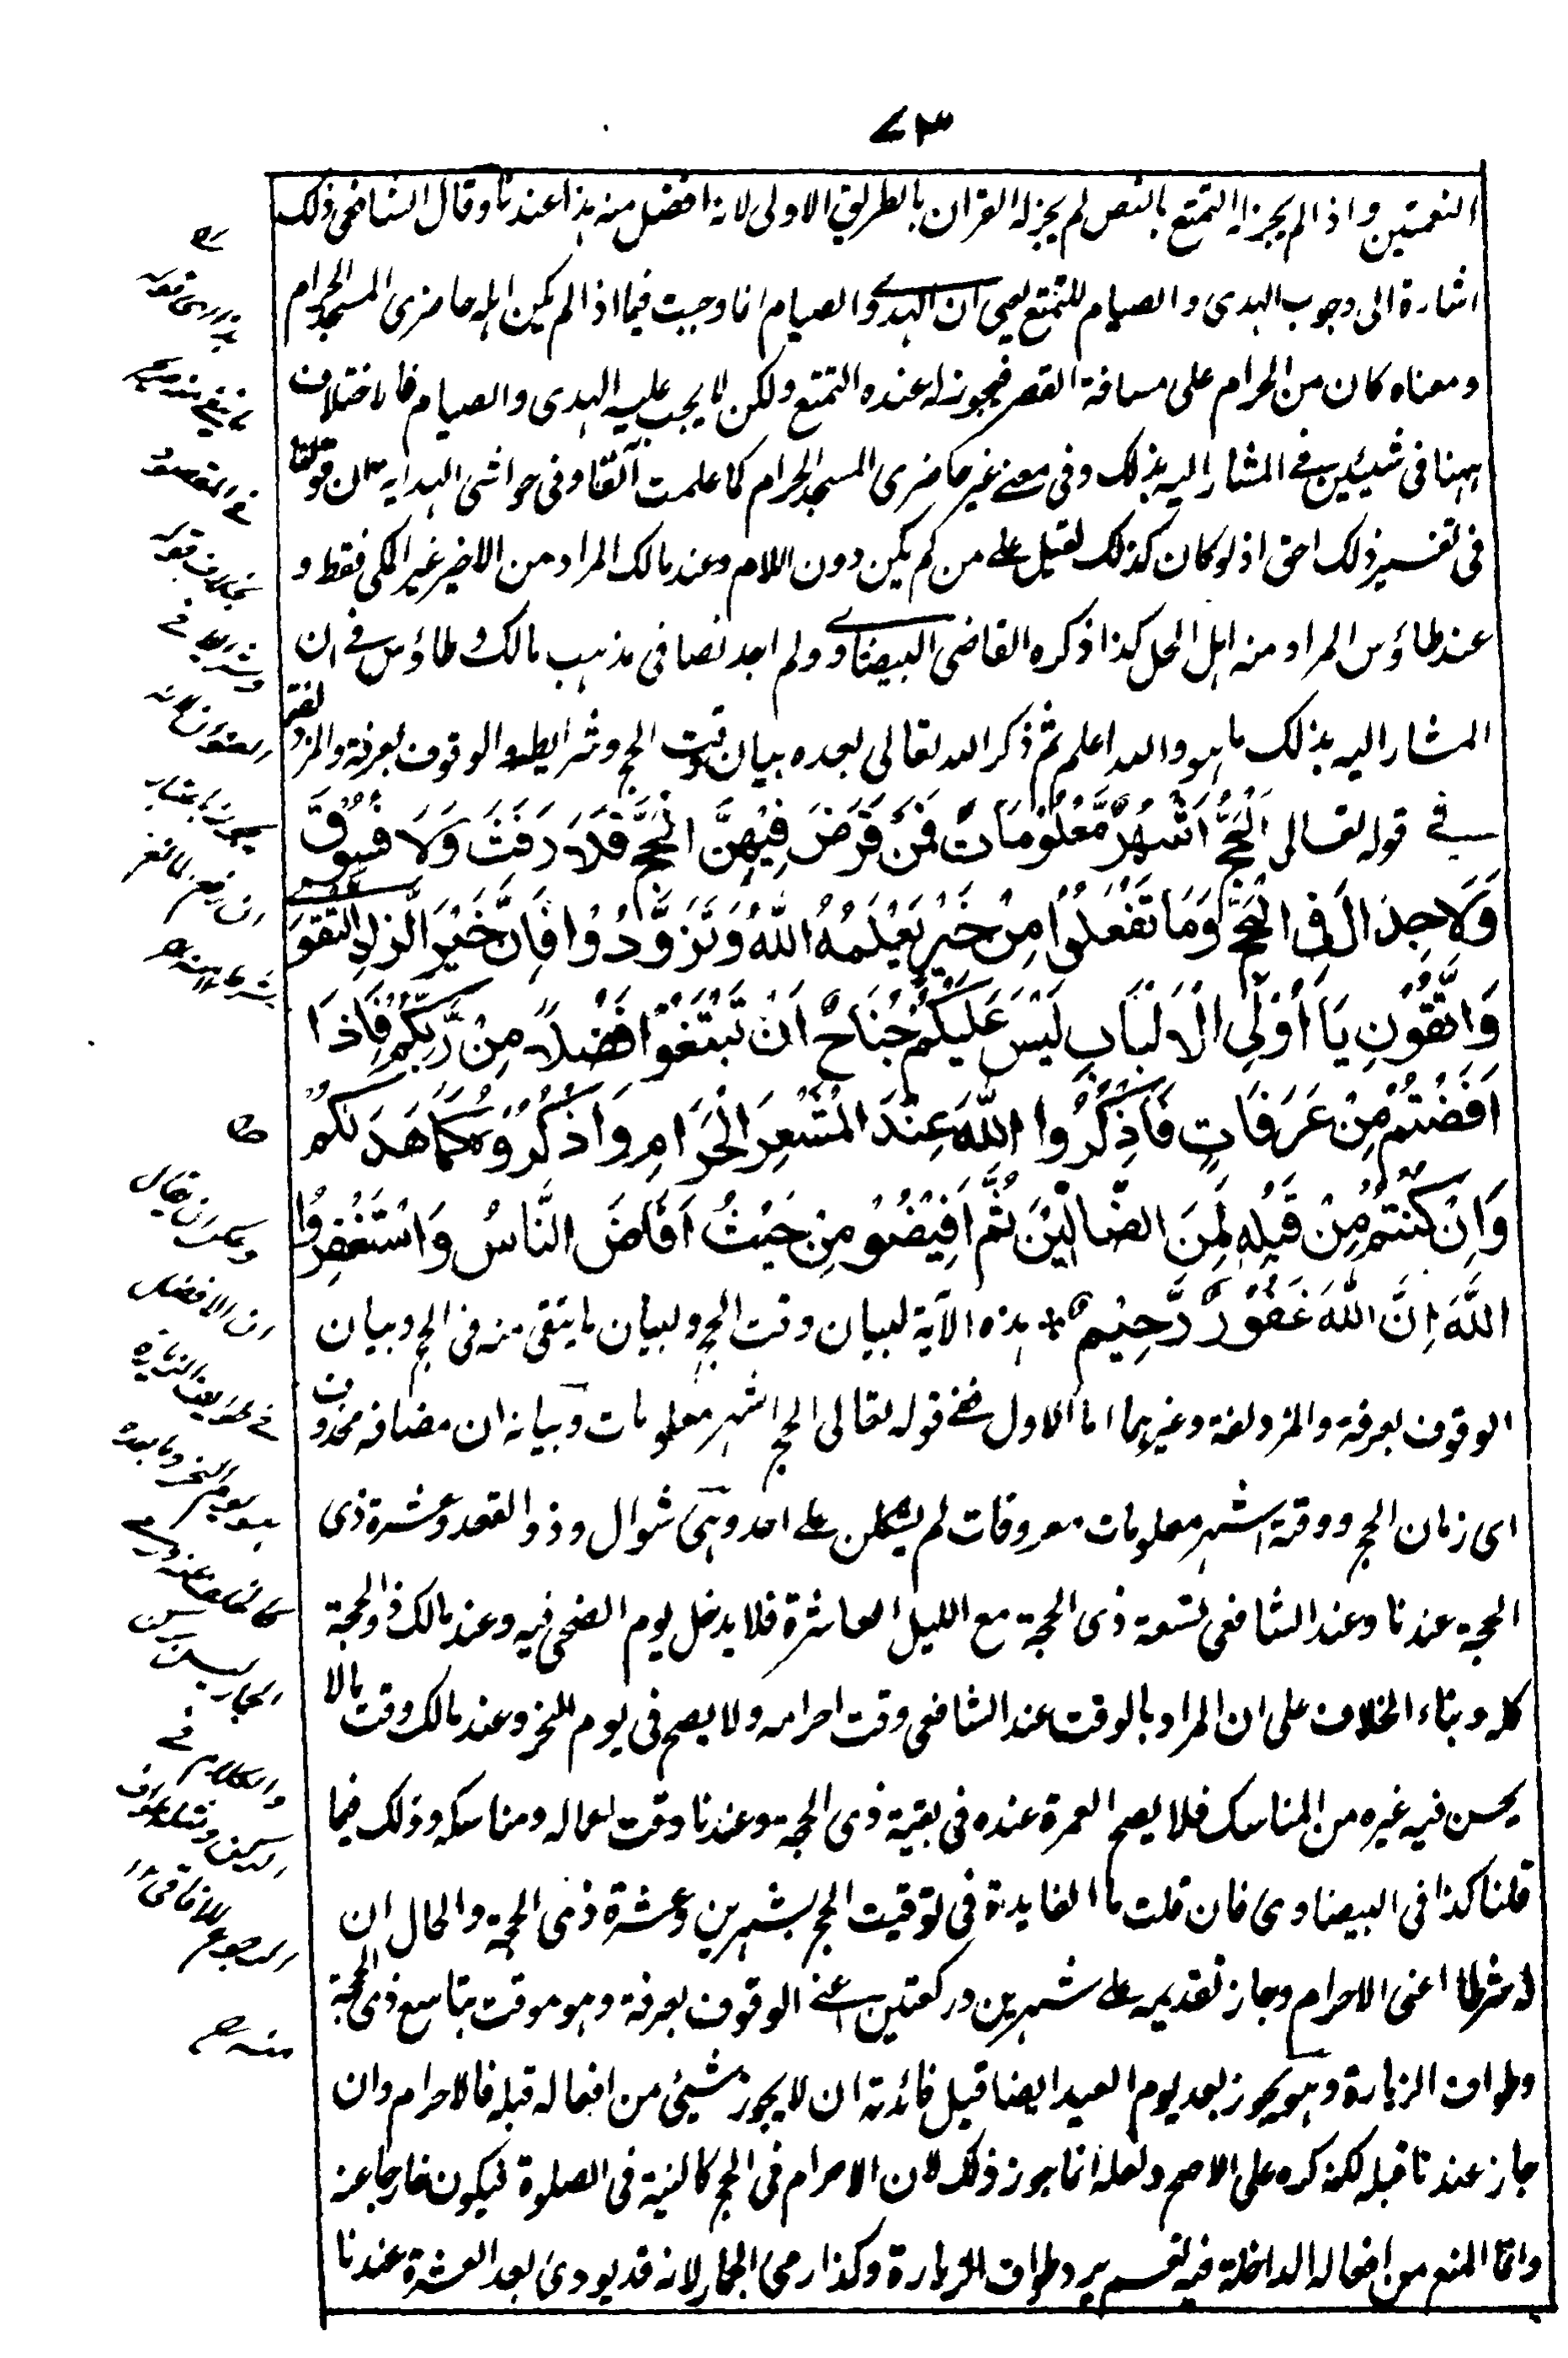 ٧٣
النعمتين واذا لم يجز له التمتع بالنص لم يجز له القران بالطريق الاولى لانه افضل منه هذا عندنا وقال الشافعى ذلك
اشارة الى وجوب الهدى والصيام للتمتع يعنى ان الهدى والصيام انما وجبت فيما اذا لم يكن اهله حاضرى المسجد الحرام
ومعناه كان من الحرام على مسافة القصر فيجوز له عنده التمتع ولكن لا يجب عليه الهدى والصيام فالاختلاف
ههنا فى شيئين فى المشار اليه بذلك وفى معنى غير حاضرى المسجد الحرام كما علمت آنفا وفى حواشى الهداية ان قولنا
فى تفسير ذلك احق اذ لو كان كذلك لقيل على من لم يكن دون اللام وعند مالك المراد من الاخير غير المكى فقط و
عند طاؤس المراد منه اهل الحل كذا ذكره القاضى البيضاوى ولم اجد نصا فى مذهب مالك وطاؤس فى ان
المشار اليه بذلك ما هو والله اعلم ثم ذكر الله تعالى بعده بيان وقت الحج وشرايطه والوقوف بعرفة والمزدلفة
فى قوله تعالى اَلْحَجُّ اَشْهُرٌ مَّعْلُوْمَاتٌ فَمَنْ فَرَضَ فِيْهِنَّ الْحَجَّ فَلَا رَفَثَ وَلَا فُسُوْقَ
وَلَا جِدَالَ فِى الْحَجِّ وَمَا تَفْعَلُوْا مِنْ خَيْرٍ يَّعْلَمْهُ اللّٰهُ وَتَزَوَّدُوْا فَاِنَّ خَيْرَ الزَّادِ التَّقْوٰى
وَاتَّقُوْنِ يَا اُولِى الْاَلْبَابِ لَيْسَ عَلَيْكُمْ جُنَاحٌ اَنْ تَبْتَغُوْا فَضْلًا مِّنْ رَّبِّكُمْ فَاِذَا
اَفَضْتُمْ مِّنْ عَرَفَاتٍ فَاذْكُرُوا اللّٰهَ عِنْدَ الْمَشْعَرِ الْحَرَامِ وَاذْكُرُوْهُ كَمَا هَدَىكُمْ
وَاِنْ كُنْتُمْ مِّنْ قَبْلِهٖ لَمِنَ الضَّالِّيْنَ ثُمَّ اَفِيْضُوْ مِنْ حَيْثُ اَفَاضَ النَّاسُ وَاسْتَغْفِرُوا
اللّٰهَ اِنَّ اللّٰهَ غَفُوْرٌ رَّحِيْمٌ * هذه الآية لبيان وقت الحج ولبيان ما يتقى منه فى الحج وبيان
الوقوف بعرفة والمزدلفة وغيرهما اما الاول ففى قوله تعالى الحج اشهر معلومات وبيانه ان مضافه محذوف
اى زمان الحج ووقته اشهر معلومات معروفات لم يشكلن على احد وهى شوال وذو القعد وعشرة ذى
الحجة عندنا وعند الشافعى تسعة ذى الحجة مع الليل العاشرة فلا يدخل يوم الضحى فيه وعند مالك ذو الحجة
كله وبناء الخلاف على ان المراد بالوقت عند الشافعى وقت احرامه ولا يصح فى يوم النحر وعند مالك وقت مالا
يحسن فيه غيره من المناسك فلا يصح العمرة عنده فى بقية ذى الحجة وعندنا وقت اعماله ومناسكه وذلك فيما
قلنا كذا فى البيضاوى فان قلت ما الفايدة فى توقيت الحج بشهرين وعشرة ذى الحجة والحال ان
له شرطا اعنى الاحرام وجاز تقديمه على شهرين وركعتين اعنى الوقوف بعرفة وهو موقت بتاسع ذى الحجة
وطواف الزيارة وهو يجوز بعد يوم العيد ايضا قيل فائدته ان لا يجوز شيئى من افعاله قبله فالاحرام وان
جاز عندنا قبله لكنه كره على الاصح ولعله انما جوز ذلك لان الاحرام فى الحج كالنية فى الصلوة ليكون خارجا عنه
وانما المنع من افعاله الداخلة فيه نعم يرد طواف الزيارة وكذا رمى الجمار لانه قد يودى بعد العشرة عندنا
ويمكن ان يقال
ان الافضل
فى طواف الزيارة
هو يوم النحر وما بعده
والكلام فى
منه